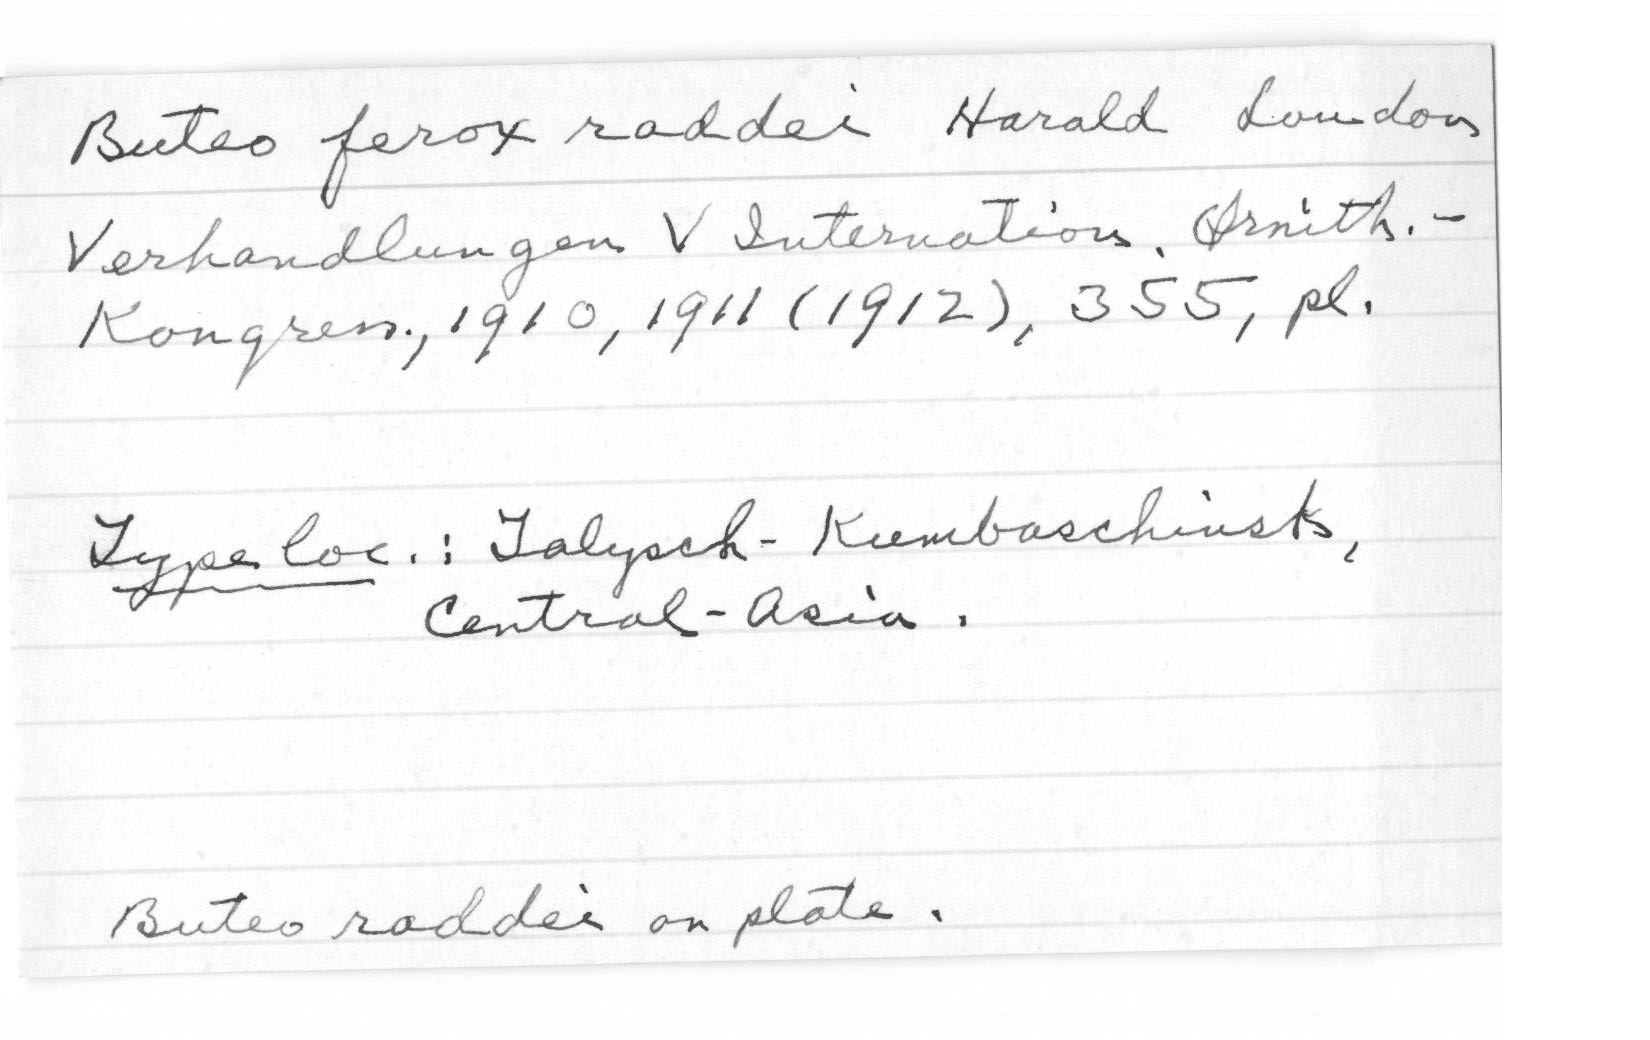 Buteo ferox raddei Harald Loudon
Verhandlungen V Internation. Ornith.-
Kongress., 1910, 1911 (1912), 355, pl.
Type loc.: Talysch-Kumbaschinsk,
Central-Asia.
Buteo raddei on plate.